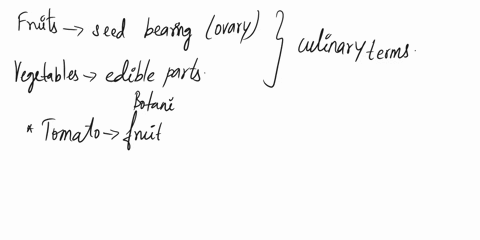 Fruits → seed bearing (ovary) } culinary terms.
Vegetables → edible parts.
Botani
* Tomato → fruit